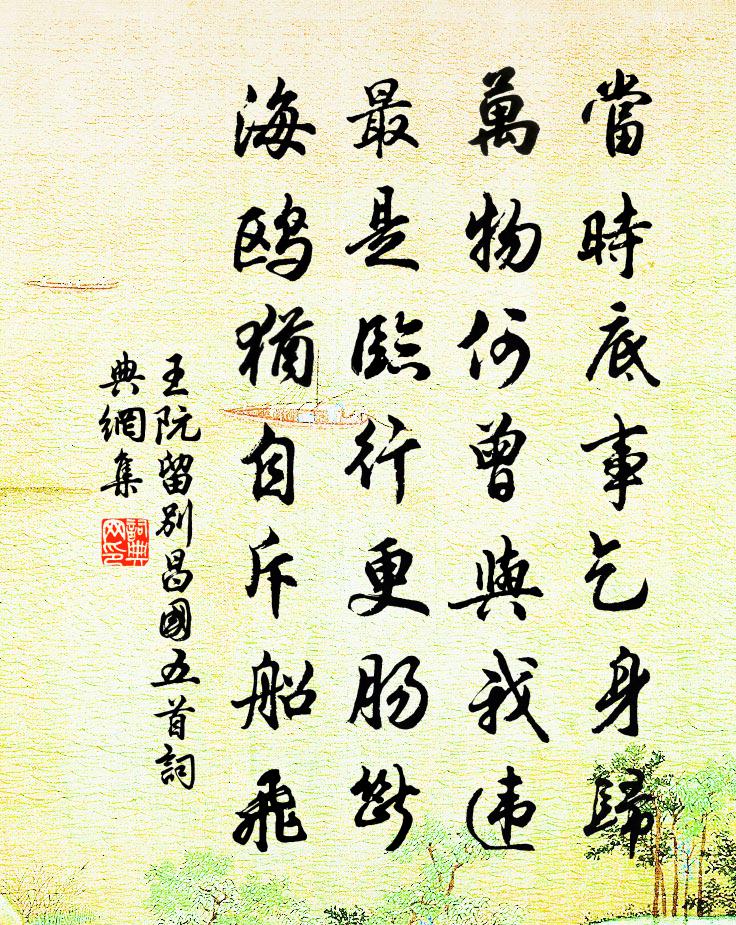 當時底事乞身歸
萬物何曾與我違
最是臨行更腸斷
海鸥猶自斥船飛
王阮留別昌國五首詞
典網集
詞典
网印